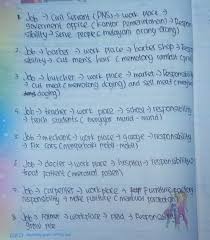 Job → Civil Servant (PNS) → work place →
government office (kantor pemerintahan) → Respon
sibility → Serve people (melayani orang orang)
Job → barber → work place → barber shop → Respon
sibility → cut men's hair (memotong rambut
Job → butcher → work place → market → Responsibility
→ cut meat (memotong daging) and sell meat (
daging)
Job → teacher → work place → school → responsibility
→ teach students (mengajar murid - murid)
Job → mechanic → work place → garage → responsibility
→ Fix cars (memperbaiki mobil - mobil)
Job → doctor → work place → hospital → responsibility →
treat patient (merawat pasien)
Job → carpenter → work place → furniture
responsibility → make furniture (membuat
Job → farmer → workplace → → Responsibility
grow rice